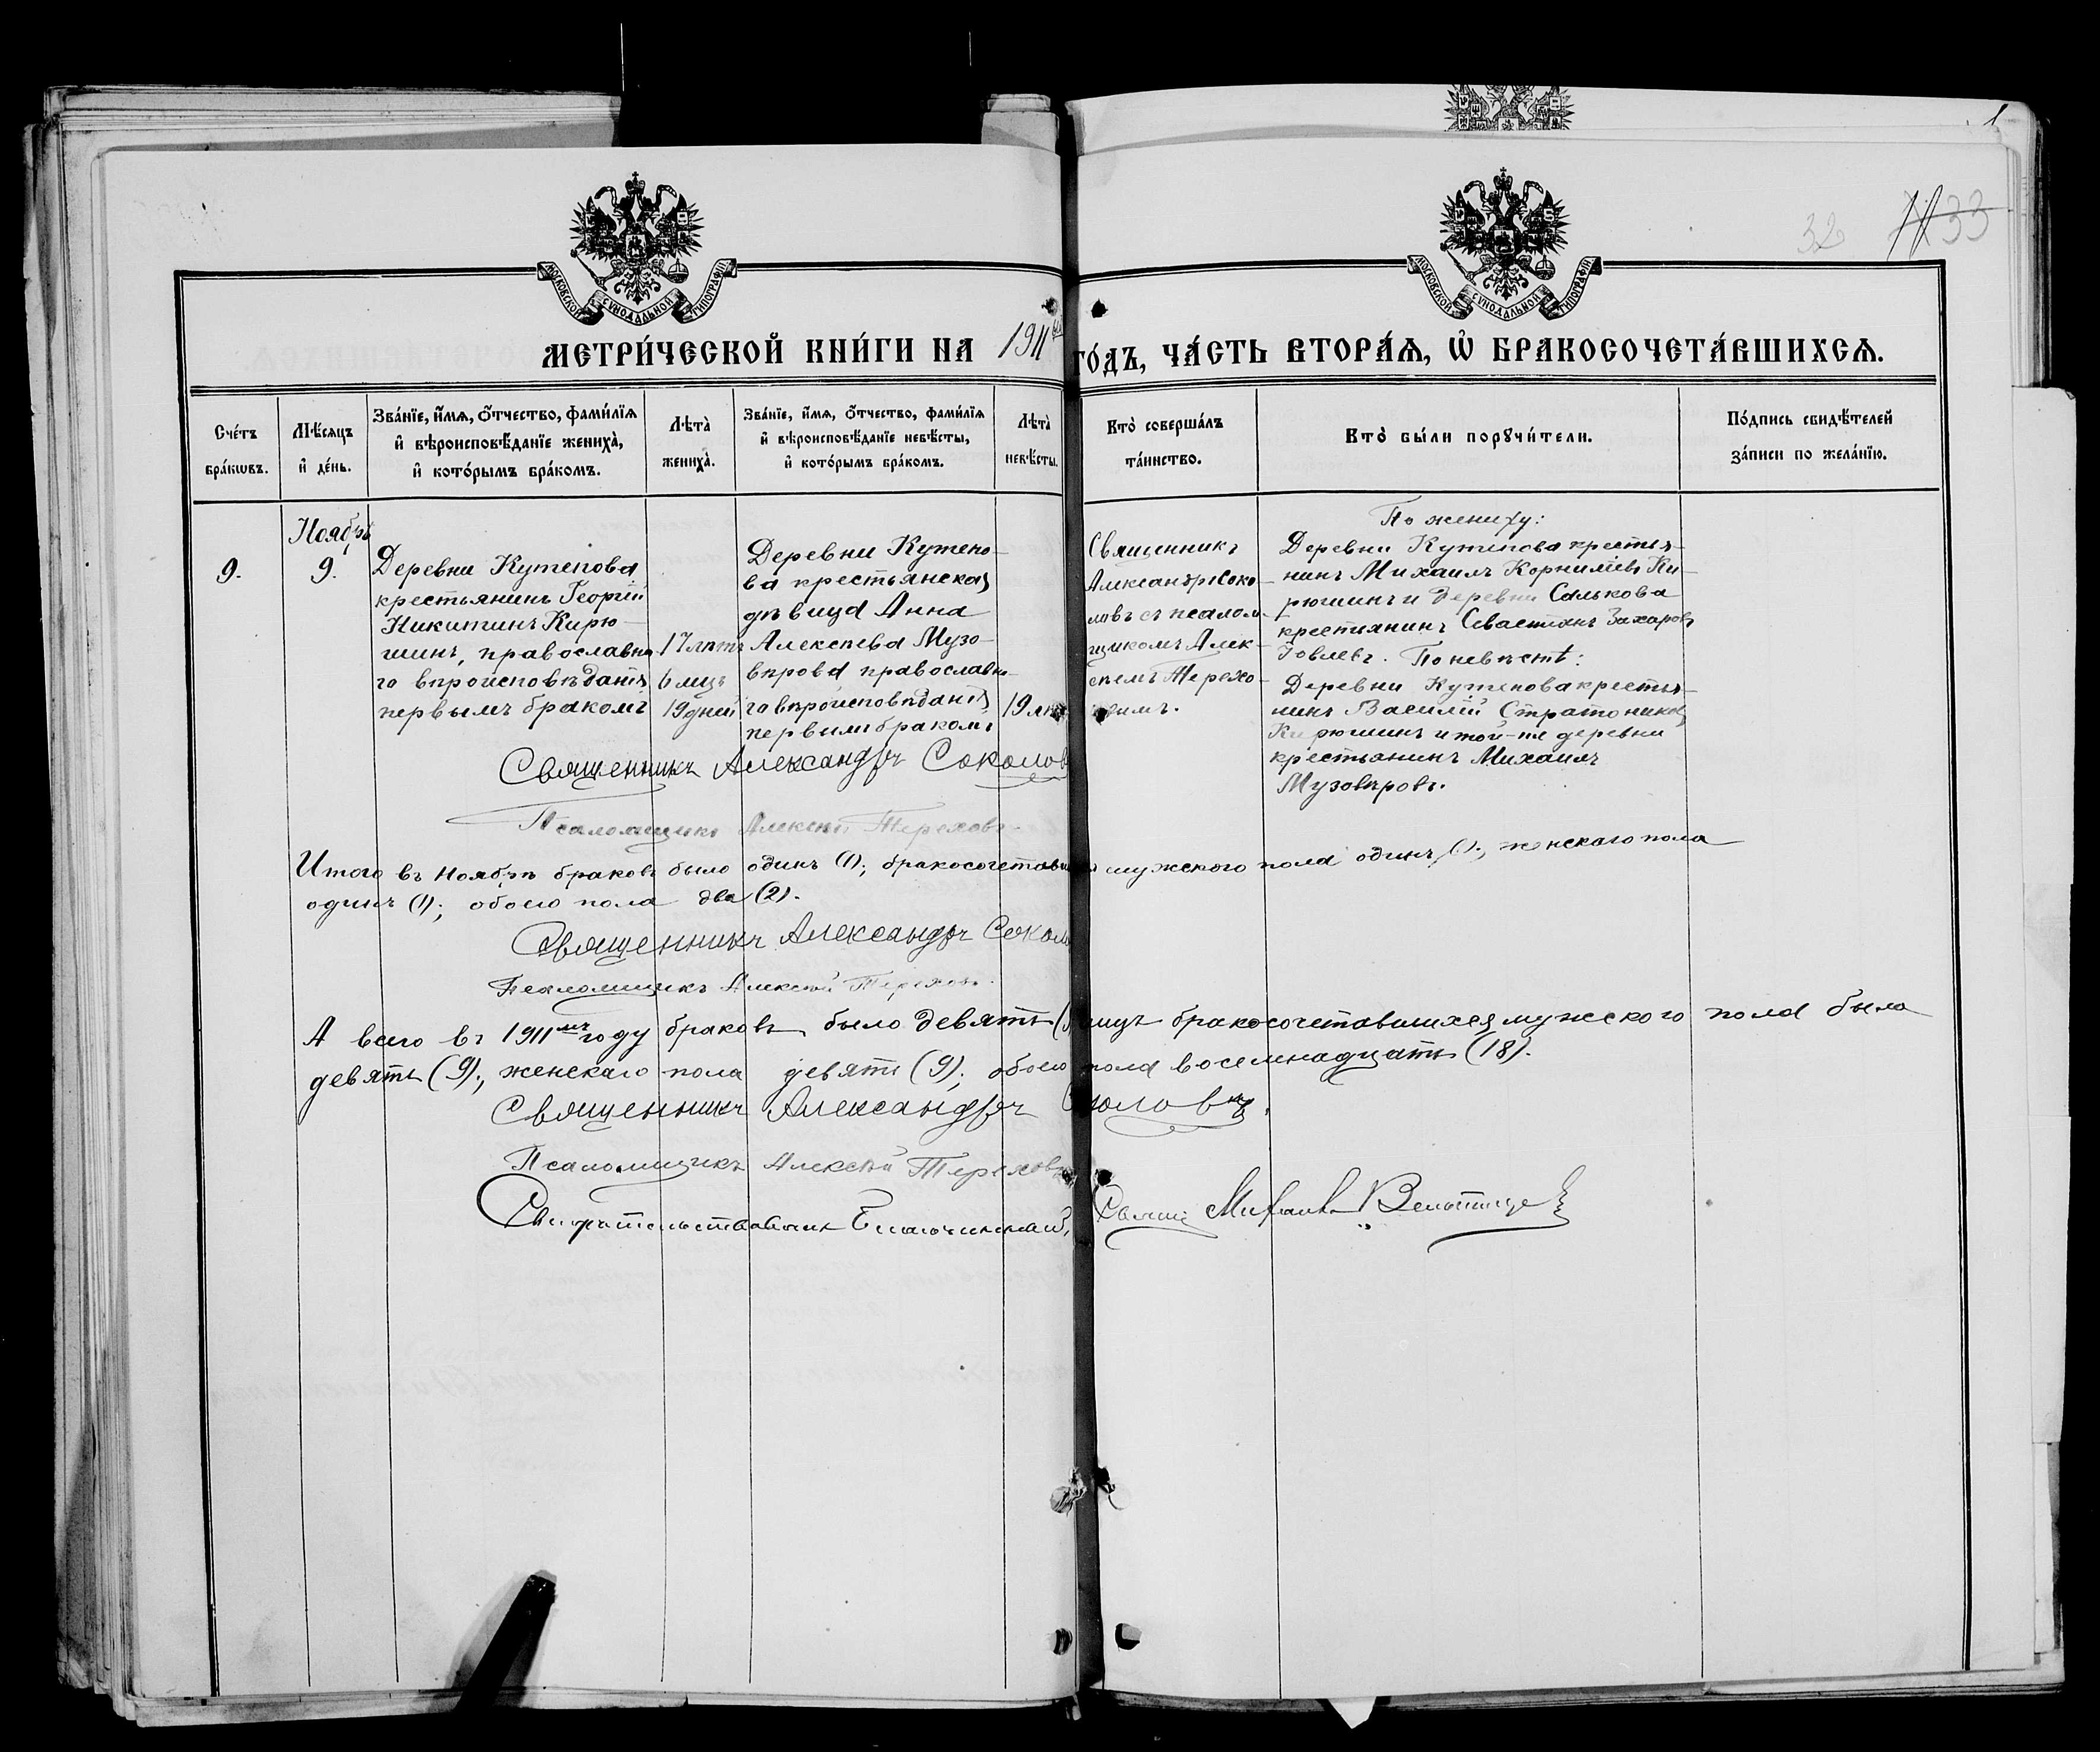 МОСКОВСКОЙ СУНОДАЛЬНОЙ ТИПОГРАФІИ
МОСКОВСКОЙ СУНОДАЛЬНОЙ ТИПОГРАФІИ
32 33
МЕТРИ́ЧЕСКОЙ КНИ́ГИ НА 1911 ГО́ДЪ, ЧА́СТЬ ВТОРА́Я, Ѡ҆ БРАКОСОЧЕТА́ВШИХСЯ.
Сче́тъ
бра́кѡвъ.
Мѣ́сяцъ
и҆ де́нь.
Зва́нїе, и҆́мя, ѻ҆́тчество, фами́лїя
и҆ вѣроисповѣ́данїе жениха̀,
и҆ кото́рымъ бра́комъ.
Лѣ́та̀
жениха̀.
Зва́нїе, и҆́мя, ѻ҆́тчество, фами́лїя
и҆ вѣроисповѣ́данїе невѣ́сты,
и҆ кото́рымъ бра́комъ.
Лѣ́та̀
невѣ́сты.
Кто̀ соверша́лъ
та́инство.
Кто̀ бы́ли порꙋчи́тели.
По́дпись свидѣ́телей
за́писи по жела́нїю.
9.
Ноябрь
9.
Деревни Кутепова
крестьянинъ Георгій
Никитинъ Кирю-
шинъ, православна-
го вѣроисповѣданія
первымъ бракомъ
17 лѣтъ
6 мѣц
19 дней
Деревни Кутепо-
ва крестьянская
дѣвица Анна
Алексѣева Музо-
вѣрова православна-
го вѣроисповѣданія
первымъ бракомъ
19 лѣт
Священникъ
Александръ Соко-
ловъ съ псалом-
щикомъ Алек-
сѣемъ Терехо-
вымъ.
По жениху:
Деревни Кутепова крестья-
нинъ Михаилъ Корниліевъ Ки-
рюшинъ и деревни Салькова
крестьянинъ Севастіанъ Захаровъ
Іовлевъ. По невѣстѣ:
Деревни Кутепова крестья-
нинъ Василій Стратониковъ
Кирюшинъ и той-же деревни
крестьянинъ Михаилъ
Музовѣровъ.
Священникъ Александръ Соколов
Псаломщикъ Алексѣй Тереховъ.
Итого въ Ноябрѣ браковъ было одинъ (1); бракосочетавш мужского пола одинъ (1); женскаго пола
одинъ (1); обоего пола два (2).
Священникъ Александръ Сокол
Псаломщикъ Алексѣй Тереховъ.
А всего въ 1911 мъ году браковъ было девять ( лицъ бракосочетавшихся мужского пола было
девять (9); женскаго пола девять (9); обоего пола восемнадцать (18).
Священникъ Александръ Соколовъ.
Псаломщикъ Алексѣй Тереховъ
Свидѣтельствовалъ Благочинный, Свящ Михаилъ